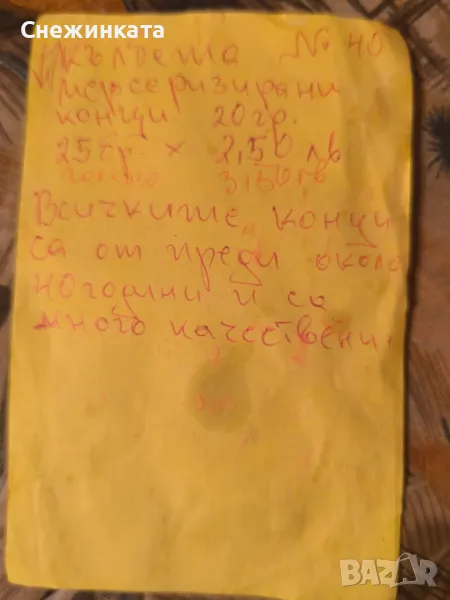 Снежинката
Кълбета № 40
мерсеризирани
конци 20гр.
25гр. × 2,50 лв
3,50лв
Всичките конци
са от преди около
40 години и са
много качествени.
BAZAR